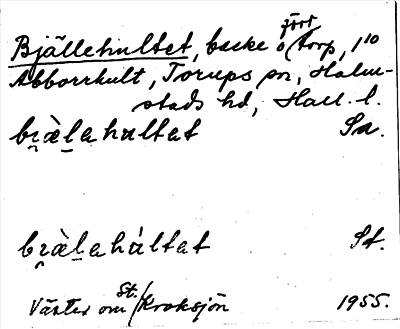 Bjällehultet, backe o. f.d. torp, 1/10
Abborrhult, Torups sn, Halm-
stads hd, Hall. l.
bi̯æ̀lahultet Sa.
bi̯æ̀lahúltet St.
Väster om St. Kroksjön 1955.